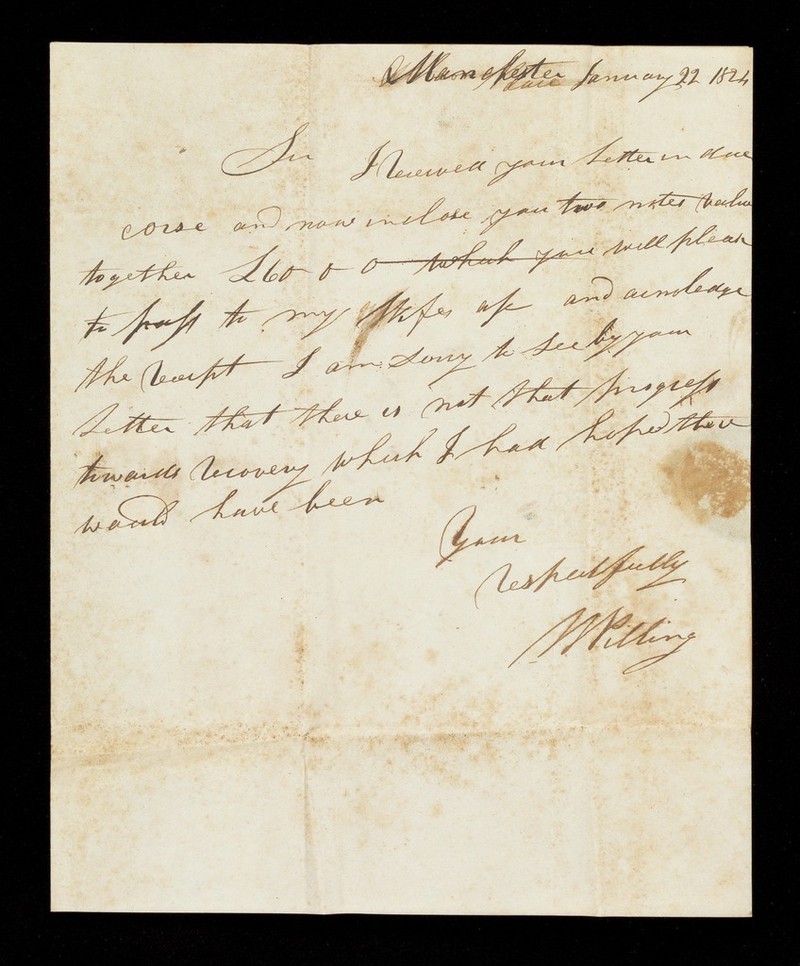 Manchester January 22 1824
Sir I Received your Letter in due
corse and now inclose you two notes value
together £60 0 0 which you will please
to pass to my Wifes a/c and acnoledge
the Receipt I am Sorry to See by your
Letter that there is not that progress
towards Recovery which I had hoped there
would have been
Your
Respectfully
W Pilling